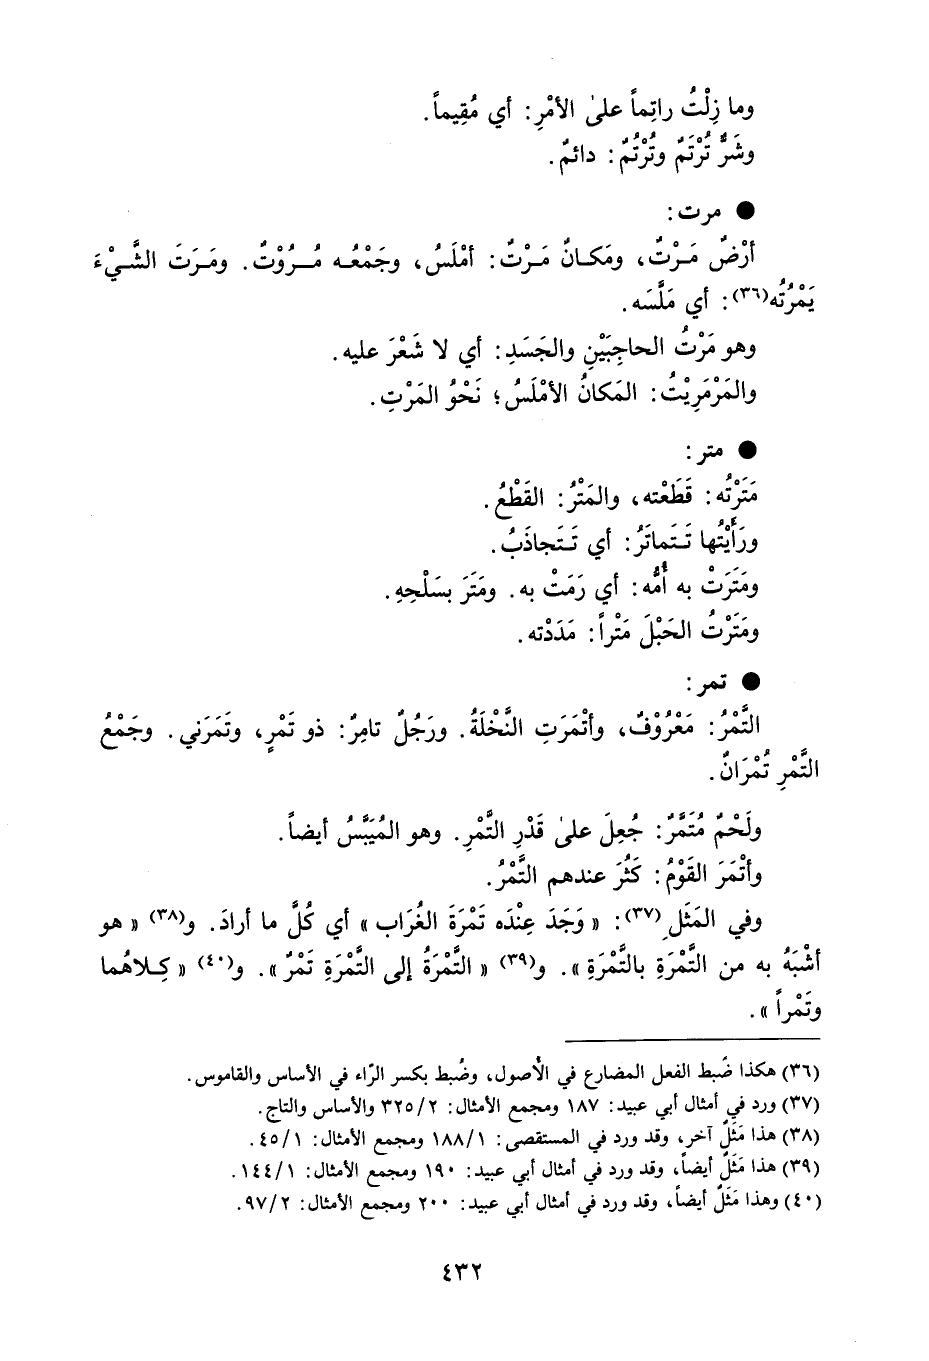 وما زِلْتُ راتِماً علىٰ الأمْرِ: أي مُقِيماً.
وشَرٌّ تُرْتَمٌ وتُرْتُمٌ: دائمٌ.
● مرت:
أرْضٌ مَـرْتٌ، ومَكـانٌ مَـرْتٌ: أمْلَسُ، وجَمْعُـه مُـرُوْتٌ. ومَـرَتَ الشَّـيْءَ
يَمْرُتُه(٣٦): أي مَلَّسَه.
وهو مَرْتُ الحاجِبَيْنِ والجَسَدِ: أي لا شَعْرَ عليه.
والمَرْمَرِيْتُ: المَكانُ الأمْلَسُ؛ نَحْوُ المَرْتِ.
● متر:
مَتَرْتُه: قَطَعْته، والمَتْرُ: القَطْعُ.
ورَأَيْتُها تَـتَماتَرُ: أي تَـتَجاذَبُ.
ومَتَرَتْ به أُمُّه: أي رَمَتْ به. ومَتَرَ بسَلْحِهِ.
ومَتَرْتُ الحَبْلَ مَتْراً: مَدَدْته.
● تمر:
التَّمْرُ: مَعْرُوْفٌ، وأتْمَرَتِ النَّخْلَةُ. ورَجُلٌ تامِرٌ: ذو تَمْرٍ، وتَمَرَني. وجَمْعُ
التَّمْرِ تُمْرَانٌ.
ولَحْمٌ مُتَمَّرٌ: جُعِلَ علىٰ قَدْرِ التَّمْرِ. وهو المُيَبَّسُ أيضاً.
وأتْمَرَ القَوْمُ: كَثُرَ عندهم التَّمْرُ.
وفي المَثَلِ(٣٧): « وَجَدَ عِنْدَه تَمْرَةَ الغُرَاب » أي كُلَّ ما أرادَ. و(٣٨) « هو
أشْبَهُ به من التَّمْرَةِ بالتَّمْرَةِ ». و(٣٩) « التَّمْرَةُ إلى التَّمْرَةِ تَمْرٌ ». و(٤٠) « كِـلاهُما
وتَمْراً ».
(٣٦) هكذا ضُبط الفعل المضارع في الأصول، وضُبط بكسر الرّاء في الأساس والقاموس.
(٣٧) ورد في أمثال أبي عبيد: ١٨٧ ومجمع الأمثال: ٣٢٥/٢ والأساس والتاج.
(٣٨) هذا مَثَلٌ آخر، وقد ورد في المستقصى: ١٨٨/١ ومجمع الأمثال: ٤٥/١.
(٣٩) هذا مَثَلٌ أيضاً، وقد ورد في أمثال أبي عبيد: ١٩٠ ومجمع الأمثال: ١٤٤/١.
(٤٠) وهذا مَثَلٌ أيضاً، وقد ورد في أمثال أبي عبيد: ٢٠٠ ومجمع الأمثال: ٩٧/٢.
٤٣٢